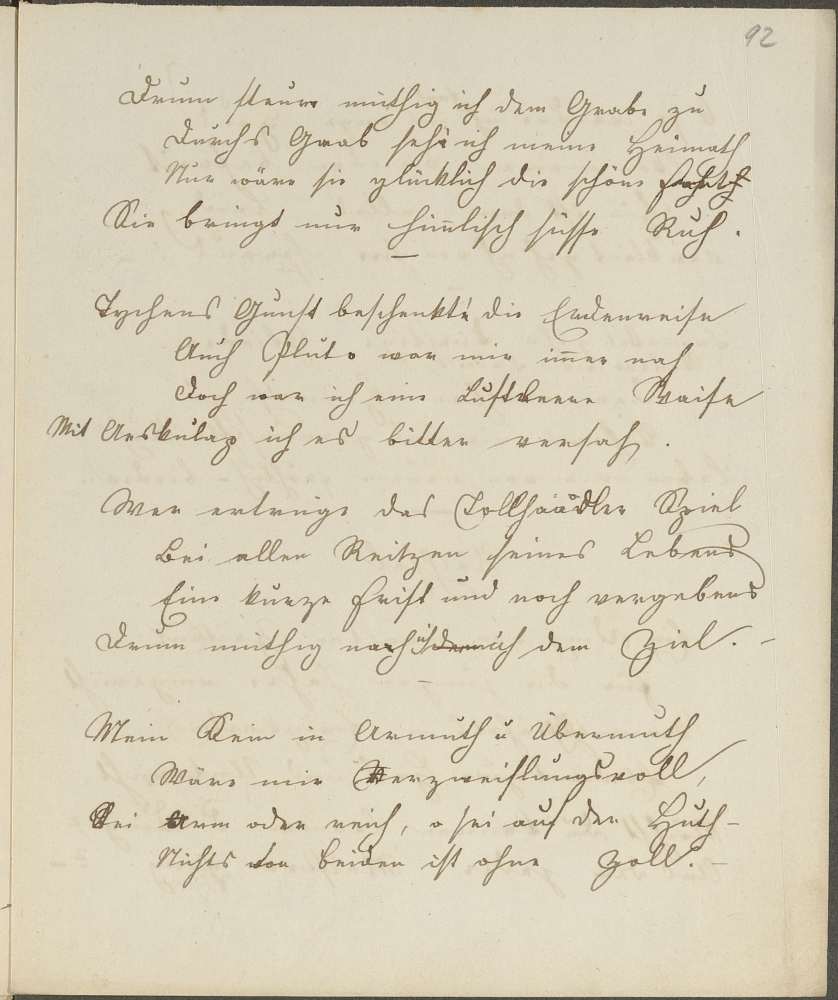 92
Drum steure muthig ich dem Grabe zu
Durchs Grab seh' ich meine Heimath
Nur wäre sie glücklich die schöne Fahrt
Sie bringt nur himlisch süsse Ruh.
Tychens Gunst beschenkte die Erdenreise
Auch Pluto war mir imer nah
Doch war ich eine Waise
Mit Aeskulap ich es bitter versah.
Wer ertrüge das Spiel
Bei allen Reitzen seines Lebens
Eine kurze Frist und noch vergebens
Drum muthig ich dem Ziel. –
Mein Sein in Armuth u Übermuth
Wäre mir Verzweiflungsvoll,
Sei Arm oder reich, o sei auf der Huth –
Nichts von beiden ist ohne Zoll. –